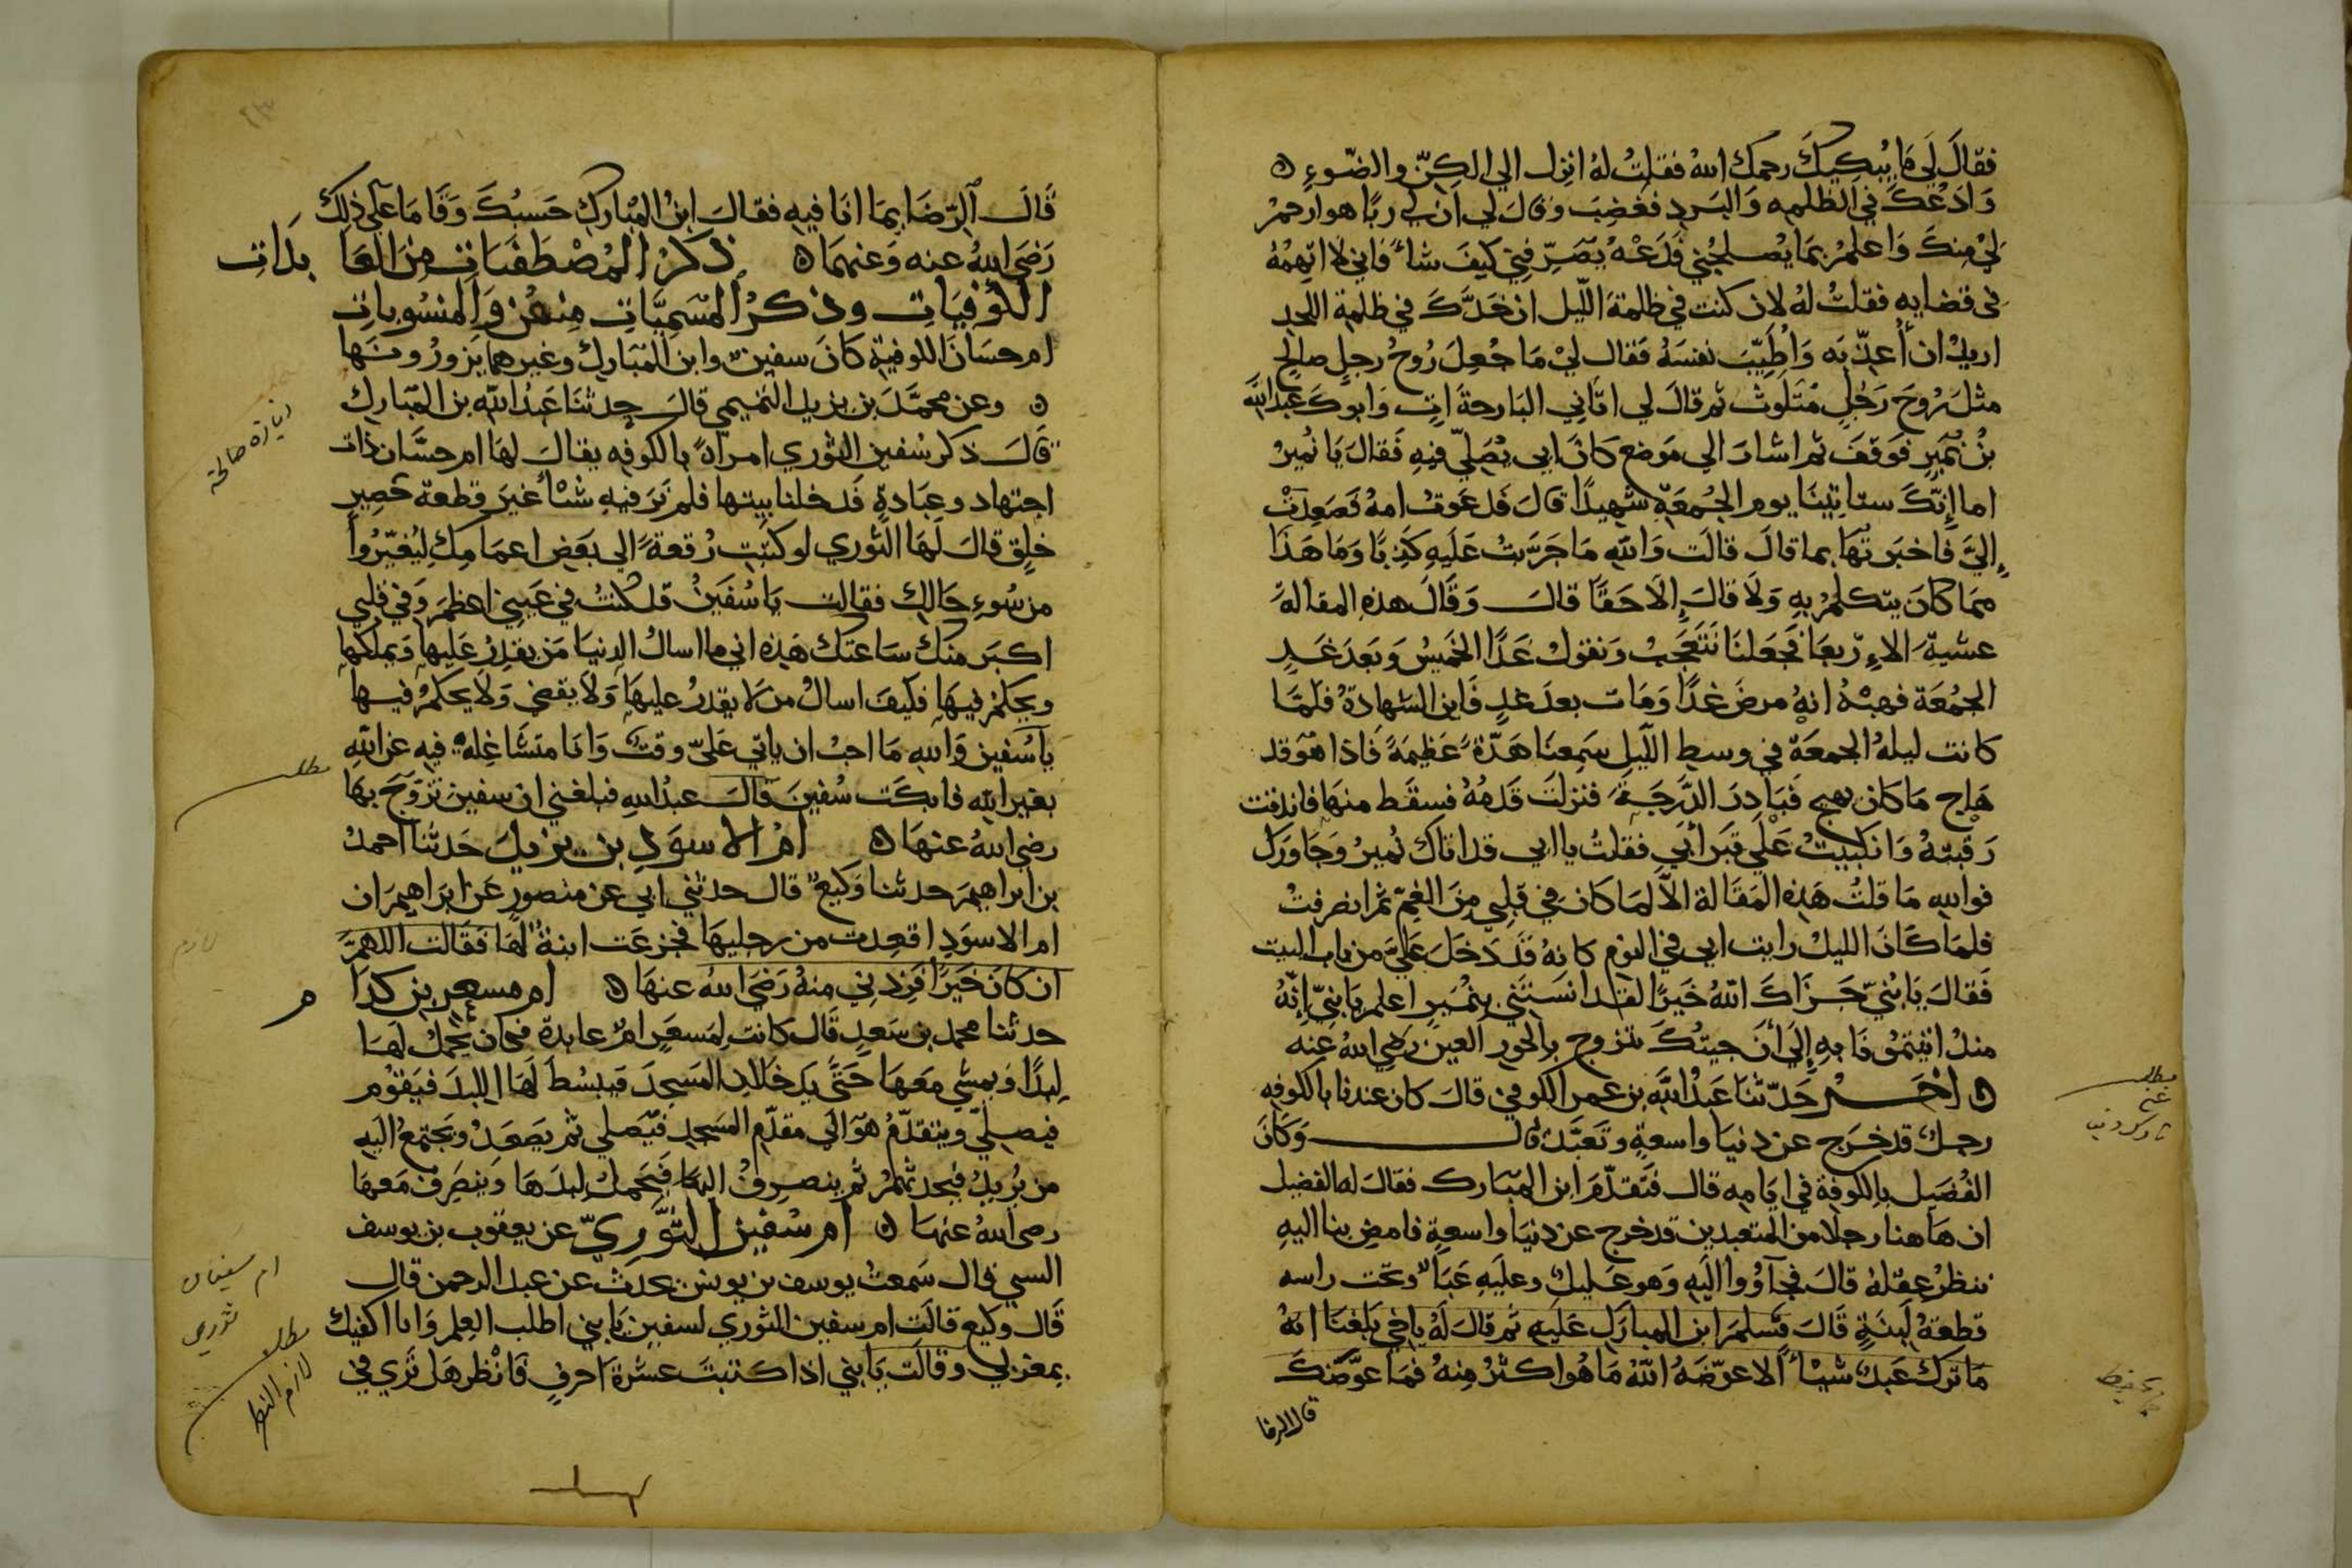 فقال لي ما يبكيك رحمك الله فقلت له انزل الي الكن والضوء ه
وادعك في الظلمه والبرد فغضب وقال لي ان لي ربا هو ارحم
لي منك واعلم بما يصلحني فدعه يصرفني كيف شاء فاني لا اتهمه
في قضايه فقلت له لان كنت في ظلمة الليل ان خدك في ظلمة اللحد
اريد ان اعذبه واطيب نفسه فقال لي ما جعل روح رجل صالح
مثل روح رجل متلوث ثم قال لي اتاني البارحة ات وابوك عبد الله
بن نمير فوقف ثم اشار الي موضع كان ابي يصلي فيه فقال يا نمير
اما إنك ستاتينا يوم الجمعة شهيدا قال فدعوت امه فصعدت
إلي فاخبرتها بما قال قالت والله ما جربت عليه كذبا وما هذا
مما كان يتكلم به ولا قال إلا حقا قال وقال هذه المقالة
عشية الاربعا فجعلنا نتعجب ونقول غدا الخميس وبعد غد
الجمعة فهبه انه مرض غدا ومات بعد غد فاين الشهادة فلما
كانت ليله الجمعة في وسط الليل سمعنا هدة عظيمة فاذا هو قد
هاج ما كان يهيج فبادر الدرجة فنزلت قدمه فسقط منها فاندقت
رقبته وانكببت علي قبر أبي فقلت يا ابي قد اتاك نمير وجاورك
فوالله ما قلت هذه المقالة الا لما كان في قلبي من الغم ثم انصرفت
فلما كان الليل رايت ابي في النوم كانه قد دخل علي من باب البيت
فقال يا بني جزاك الله خيرا لقد انستني بنمير اعلم يا بني إنه
منذ اتيتمونا به إلي أن جيتك يتزوج بالحور العين رضي الله عنه
ه اخر حدثنا عبد الله بن عمر الكوفي قال كان عندنا بالكوفه
رجل قد خرج عن دنيا واسعة وتعبد قال وكان
الفضيل بالكوفة في ايامه قال فتقدم ابن المبارك فقال له الفضيل
ان هاهنا رجلا من المتعبدين قد خرج عن دنيا واسعة فامض بنا اليه
ننظر عقله قال فجاؤوا اليه وهو عليل وعليه عبا وتحت راسه
قطعة لبنة قال فسلم ابن المبارك عليه ثم قال له يا اخي بلغنا انه
ما ترك عبد شيئا الا عوضه الله ما هو اكثر منه فما عوضك
قال الرضا
مطلب
قال الرضا بما انا فيه فقال ابن المبارك حسبك وقاما علي ذلك
رضي الله عنه وعنهما ه ذكر المصطفيات من العابدات
الكوفيات وذكر المسميات منهن والمنسوبات
ام حسان الكوفية كان سفين وابن المبارك وغيرهما يزورونها
ه وعن محمد بن يزيد التميمي قال حدثنا عبد الله بن المبارك
قال ذكر سفين الثوري امراة بالكوفه يقال لها ام حسان ذات
اجتهاد وعبادة فدخلنا بيتها فلم نر فيه شئا غير قطعة حصير
خلق قال لها الثوري لو كتبت رقعة الي بعض اعمامك ليغيروا
من سوء حالك فقالت يا سفين قد كنت في عيني اعظم وفي قلبي
اكبر منك ساعتك هذه اني ما اسال الدنيا من يقدر عليها ويملكها
ويحكم فيها فكيف اسال من لا يقدر عليها ولا يقضي ولا يحكم فيها
يا سفين والله ما احب ان ياتي علي وقت وانا متشاغلة فيه عن الله
بغير الله فابكت سفين قال عبد الله فبلغني ان سفين تزوج بها
رضي الله عنها ه ام الاسود بن يزيد حدثنا احمد
بن ابراهيم حدثنا وكيع قال حدثني ابي عن منصور عن ابراهيم ان
ام الاسود اقعدت من رجليها فجزعت ابنة لها فقالت اللهم
ان كان خيرا فزدني منه رضي الله عنها ه ام مسعر بن كدام
حدثنا محمد بن سعد قال كانت لمسعر ام عابدة فكان يحمل لها
لبدا ويمشي معها حتي يدخلا المسجد فيبسط لها اللبد فيقوم
فيصلي ويتقدم هو الي مقدم المسجد فيصلي ثم يصعد ويجتمع اليه
من يريد فيحدثهم ثم ينصرف اليها فيحمل لبدها وينصرف معها
رضي الله عنها ه ام سفين الثوري عن يعقوب بن يوسف
قال سمعت يوسف بن يونس يحدث عن عبد الرحمن قال
قال وكيع قالت ام سفين الثوري لسفين يا بني اطلب العلم وانا اكفيك
بمغزلي وقالت يا بني اذا كتبت عشرة احرف فانظر هل تري في
زيارة صالحة
مطلب
ام سفيان
ثوري
مطلب